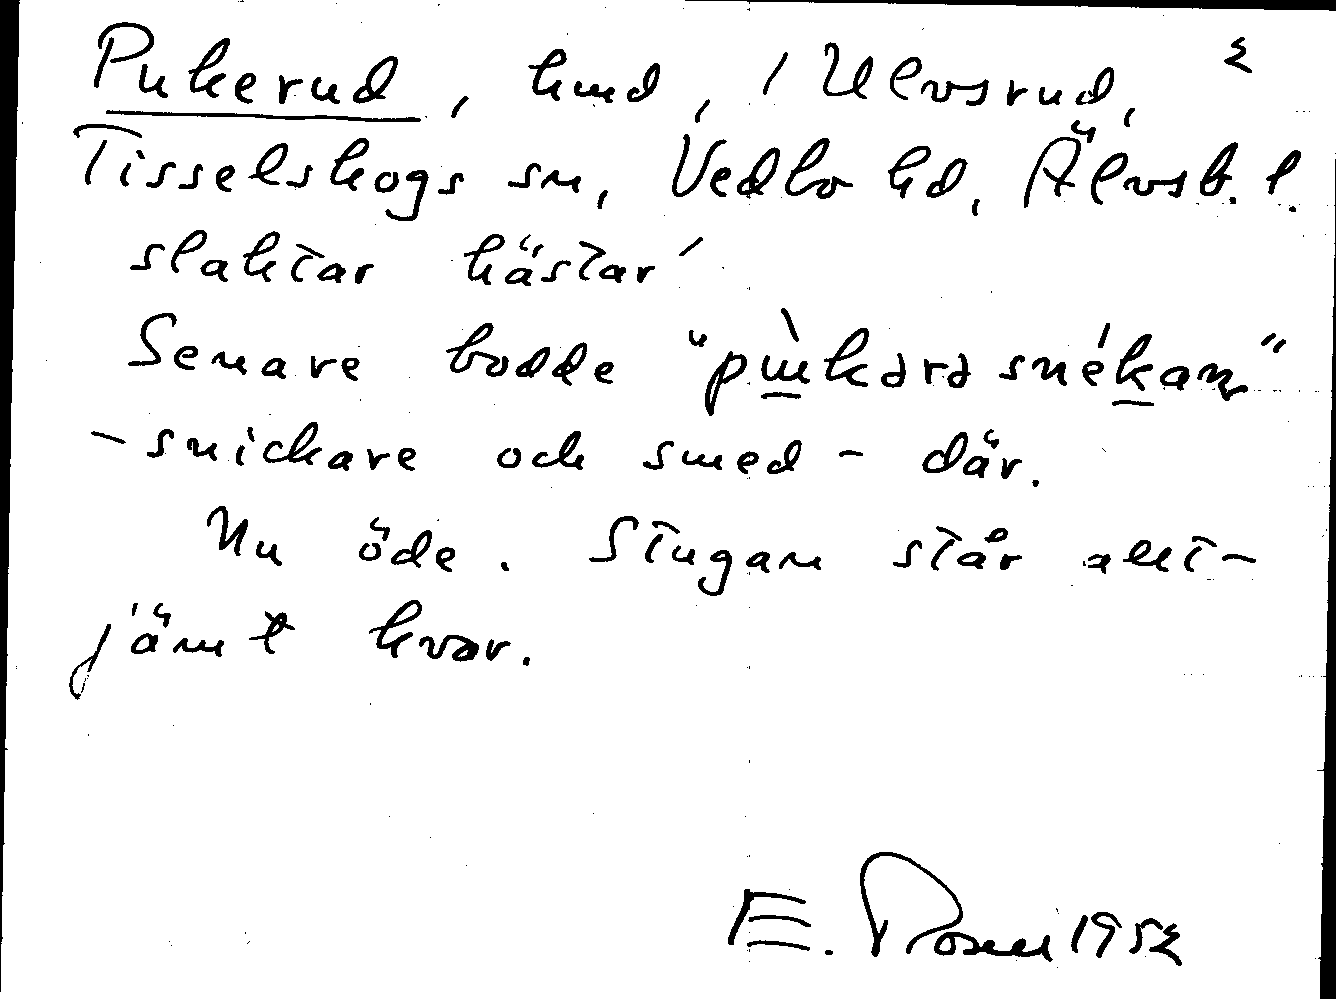 Pukerud, hmd, / Ulvsrud, 2
Tisselskogs sn, Vedbo hd, Älvsb. l.
slaktar hästar'
Senare bodde "pu̱kərə snéḵan"
- snickare och smed - där.
Nu öde. Stugan står allt-
jämt kvar.
E. Rosell 1952